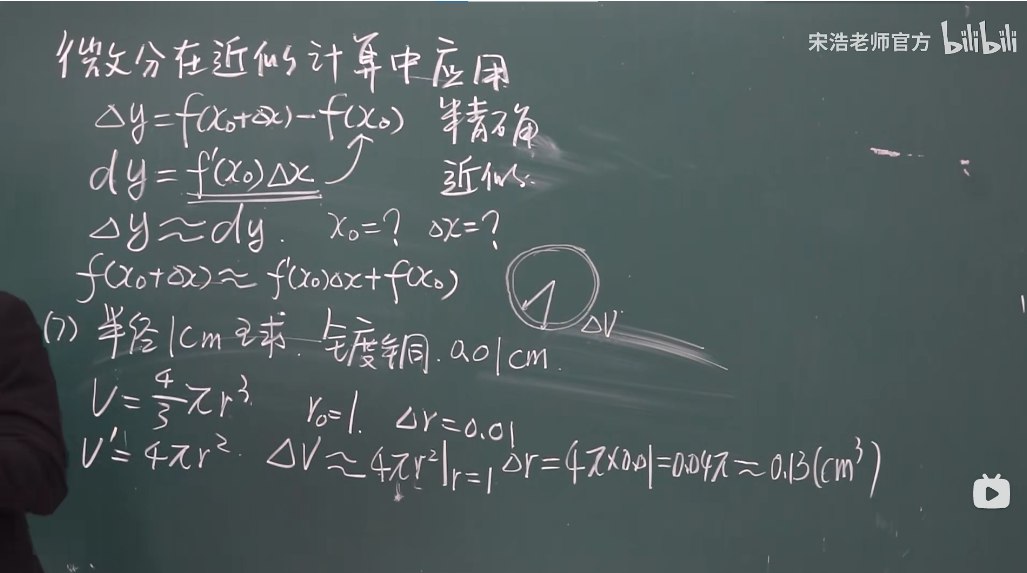 宋浩老师官方 bilibili
微分在近似计算中应用
Δy=f(x₀+Δx)-f(x₀) 精确
dy=f'(x₀)Δx 近似
Δy≈dy. x₀=? Δx=?
f(x₀+Δx)≈f'(x₀)Δx+f(x₀)
ΔV
半径1cm 球. 镀铜. 0.01cm.
V=4/3πr³. r₀=1. Δr=0.01
V'=4πr². ΔV≈4πr²|r=1 Δr=4π×0.01=0.04π≈0.13(cm³)